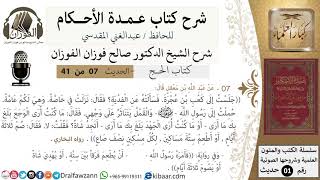 شرح كتاب عمدة الأحكام
للحافظ / عبدالغني المقدسي
شرح الشيخ الدكتور صالح فوزان الفوزان
كتاب الحج - الحديث 07 من 41
الفوزان
07 - عَنْ عَبْدِ اللهِ بْنِ مَعْقِلٍ قَالَ:
((جَلَسْتُ إلَى كَعْبِ بْنِ عُجْرَةَ، فَسَأَلْتُهُ عَنِ الْفِدْيَةِ؟ فَقَالَ: نَزَلَتْ فِيَّ خَاصَّةً، وَهِيَ لَكُمْ عَامَّةً.
حُمِلْتُ إلَى رَسُولِ اللهِ - وَالْقَمْلُ يَتَنَاثَرُ عَلَى وَجْهِي. فَقَالَ: مَا كُنْتُ أُرَى الْوَجَعَ بَلَغَ
بِكَ مَا أَرَى - أَوْ مَا كُنْتُ أُرَى الْجَهْدَ بَلَغَ بِكَ مَا أَرَى - أَتَجِدُ شَاةً؟ فَقُلْتُ: لَا. فَقَالَ: صُمْ ثَلَاثَةَ
أَيَّامٍ، أَوْ أَطْعِمْ سِتَّةَ مَسَاكِينَ، لِكُلِّ مِسْكِينٍ نِصْفَ صَاعٍ)) رواه البخاري.
- وفي رواية: ((فَأَمَرَهُ رَسُولُ اللهِ - أَنْ يُطْعِمَ فَرَقًا بَيْنَ سِتَّةٍ، أَوْ يُهْدِيَ شَاةً
أَوْ يَصُومَ ثَلَاثَةَ أَيَّامٍ)).
سلسلة الكتب والمتون
العلمية وشروحها الصوتية
رقم 01 حديث
Dralfawzann